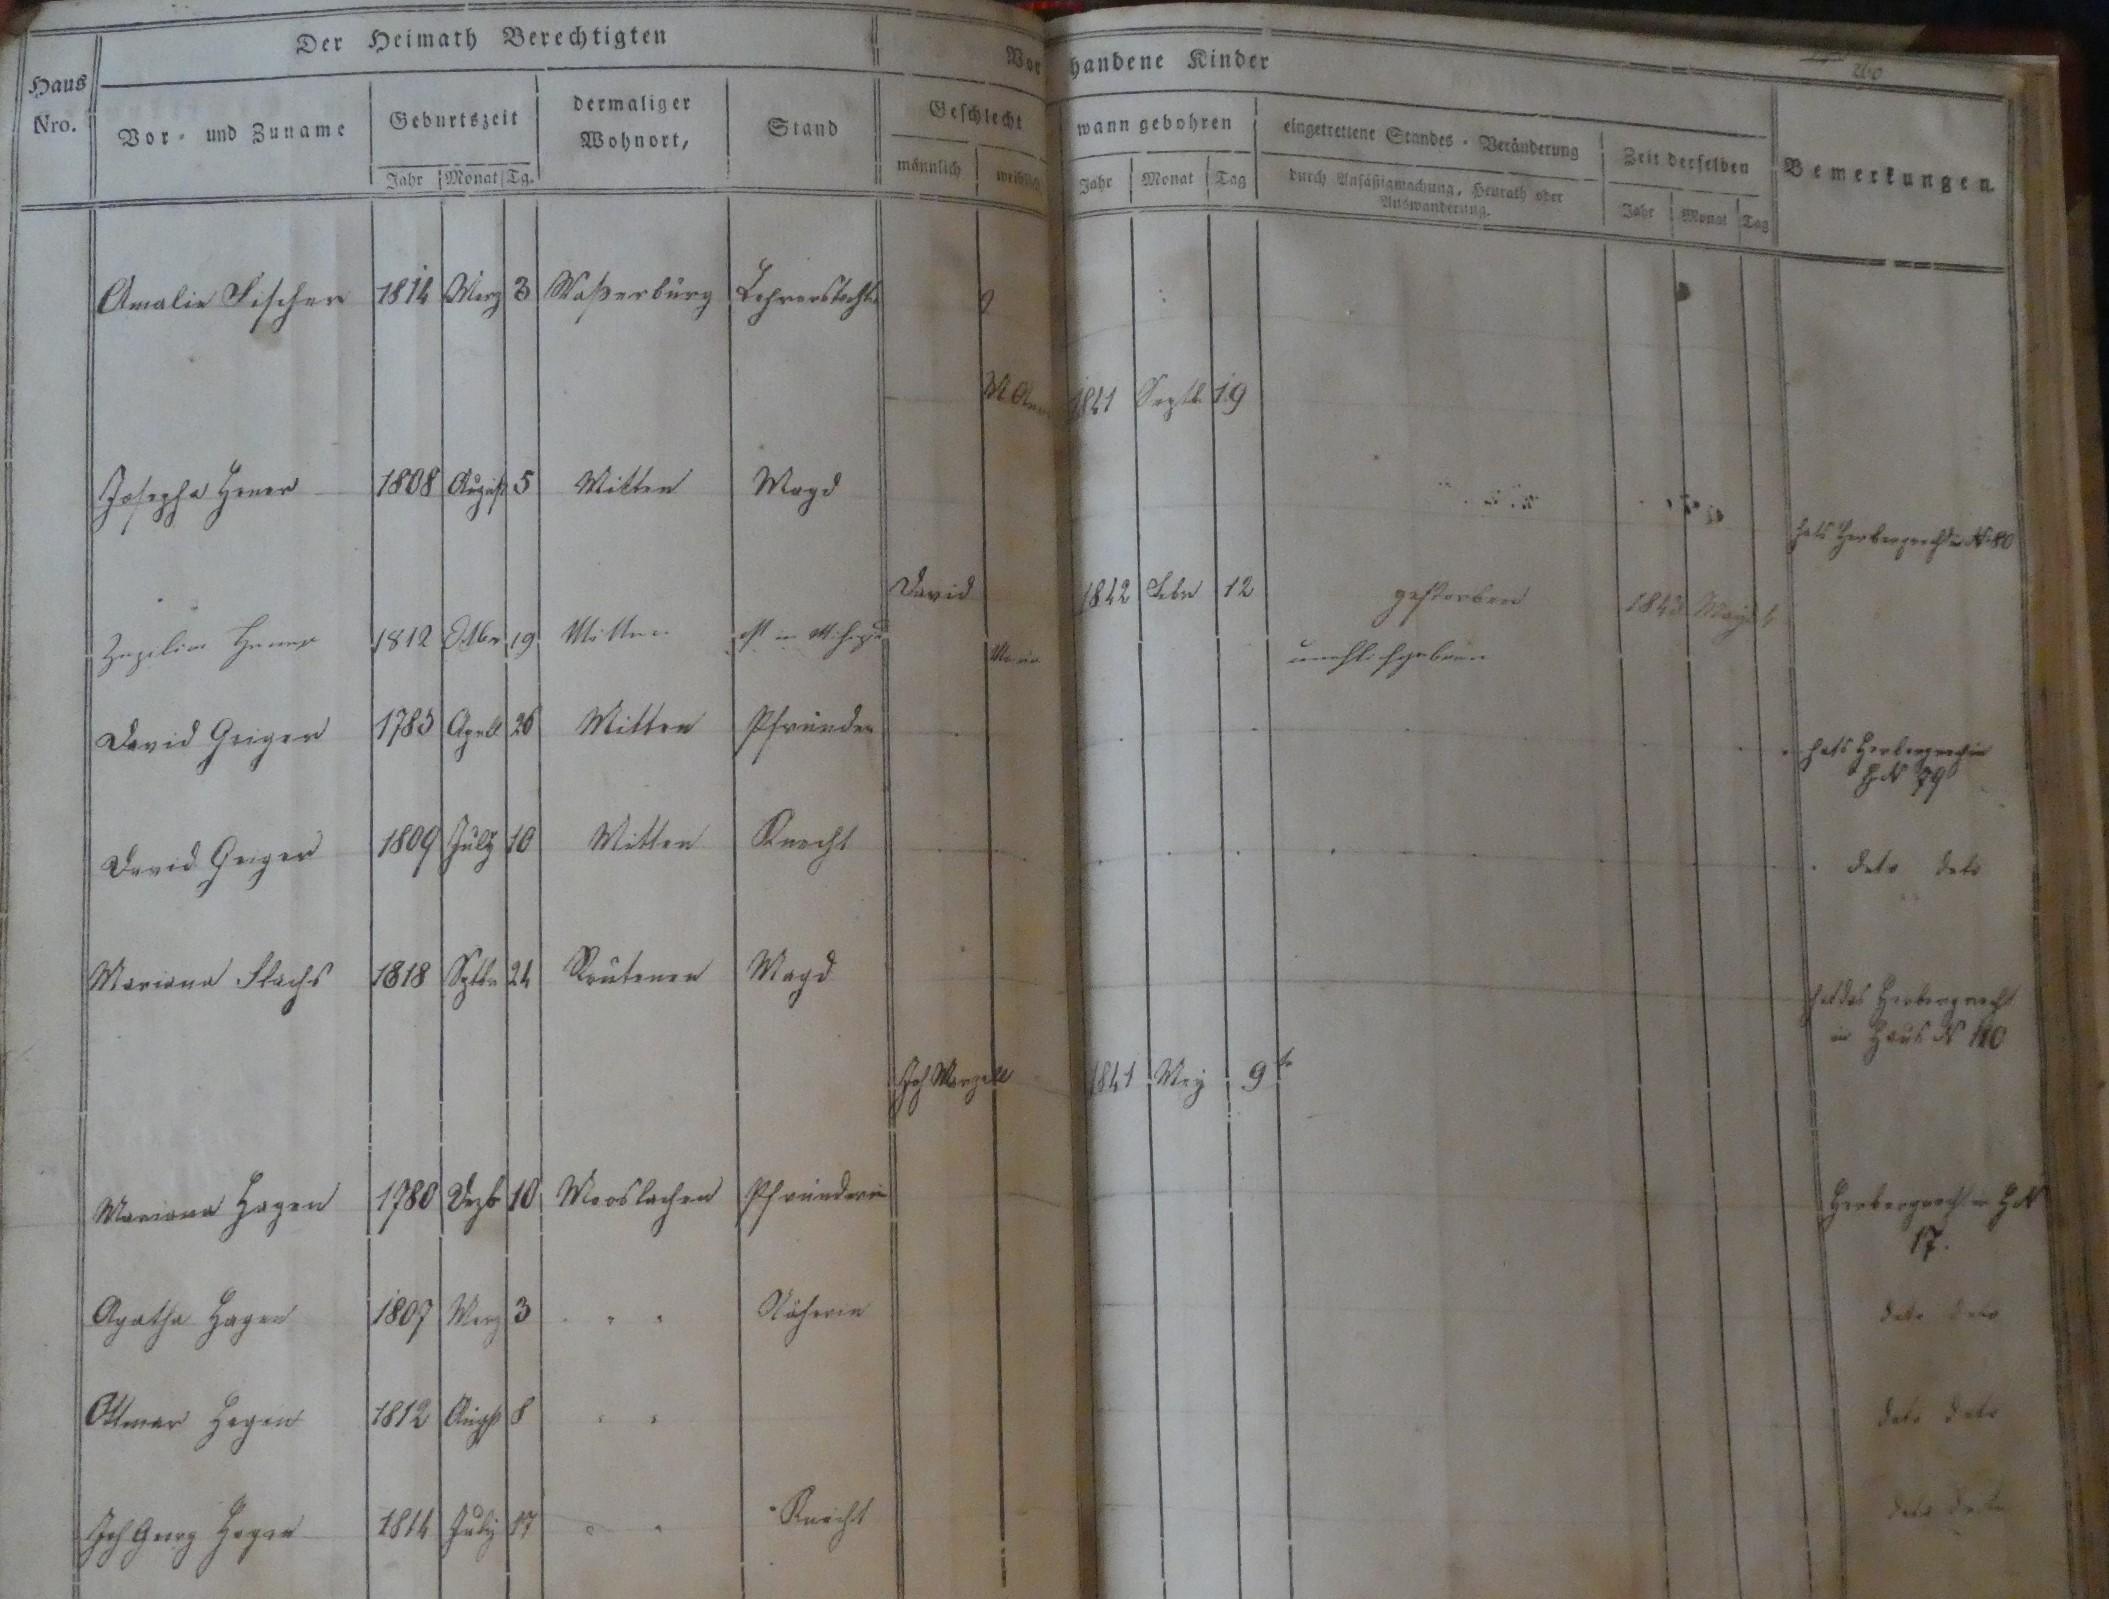 Der Heimath Berechtigten
Vorhandene Kinder
260
Haus Nro.
Vor- und Zuname
Geburtszeit
Jahr Monat Tg.
dermaliger Wohnort,
Stand
Geschlecht
männlich weiblich
wann gebohren
Jahr Monat Tag
eingetrettene Standes-Veränderung
durch Ansäßigmachung, Heurath oder
Auswanderung.
Zeit derselben
Jahr Monat Tag
Bemerkungen.
Amalie Fischer 1814 Merz 3 Waßerburg Lehrerstochter
M Anna 1841 Septb. 19
Josepha Hener 1808 August 5 Mitten Magd
hats Herbergrecht in N 80
David 1842 Febr 12 gestorben 1843 May
Zezilia Hener 1812 Otbr 19 Mitten Maria unehlich geboren
David Geiger 1785 Aprill 26 Mitten Pfründer hats Herbergrecht in
H N 79
David Geiger 1809 July 10 Mitten Knecht deto deto
Mariana Flachs 1818 Sptbr 24 Reutenen Magd hat das Herbergrecht
in Haus N 110
Joh Marzell 1841 May 9
Mariana Hagen 1780 Dezb 10 Mooslachen Pfründerin Herbergrecht in H N
17.
Agatha Hagen 1807 Merz 3 " " Näherin deto deto
Ottmar Hagen 1812 Augst 8 " " deto deto
Joh Georg Hagen 1814 July 17 " " Knecht deto deto